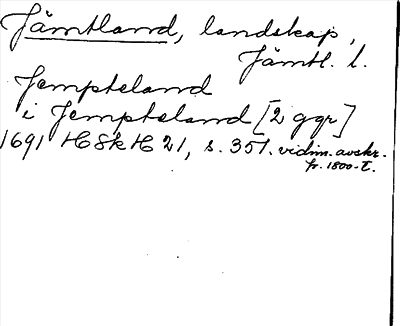 Jämtland, landskap,
Jämtl. l.
Jempteland
i Jempteland [2 ggr]
1691 HSkH 21, s. 351. vidim. avskr.
fr. 1800-t.